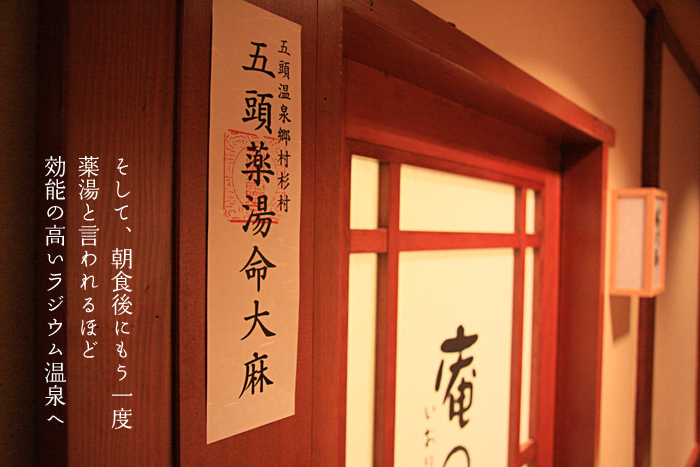 五頭温泉郷村杉村
五頭薬湯命大麻
庵の
いおり
そして、朝食後にもう一度
薬湯と言われるほど
効能の高いラジウム温泉へ